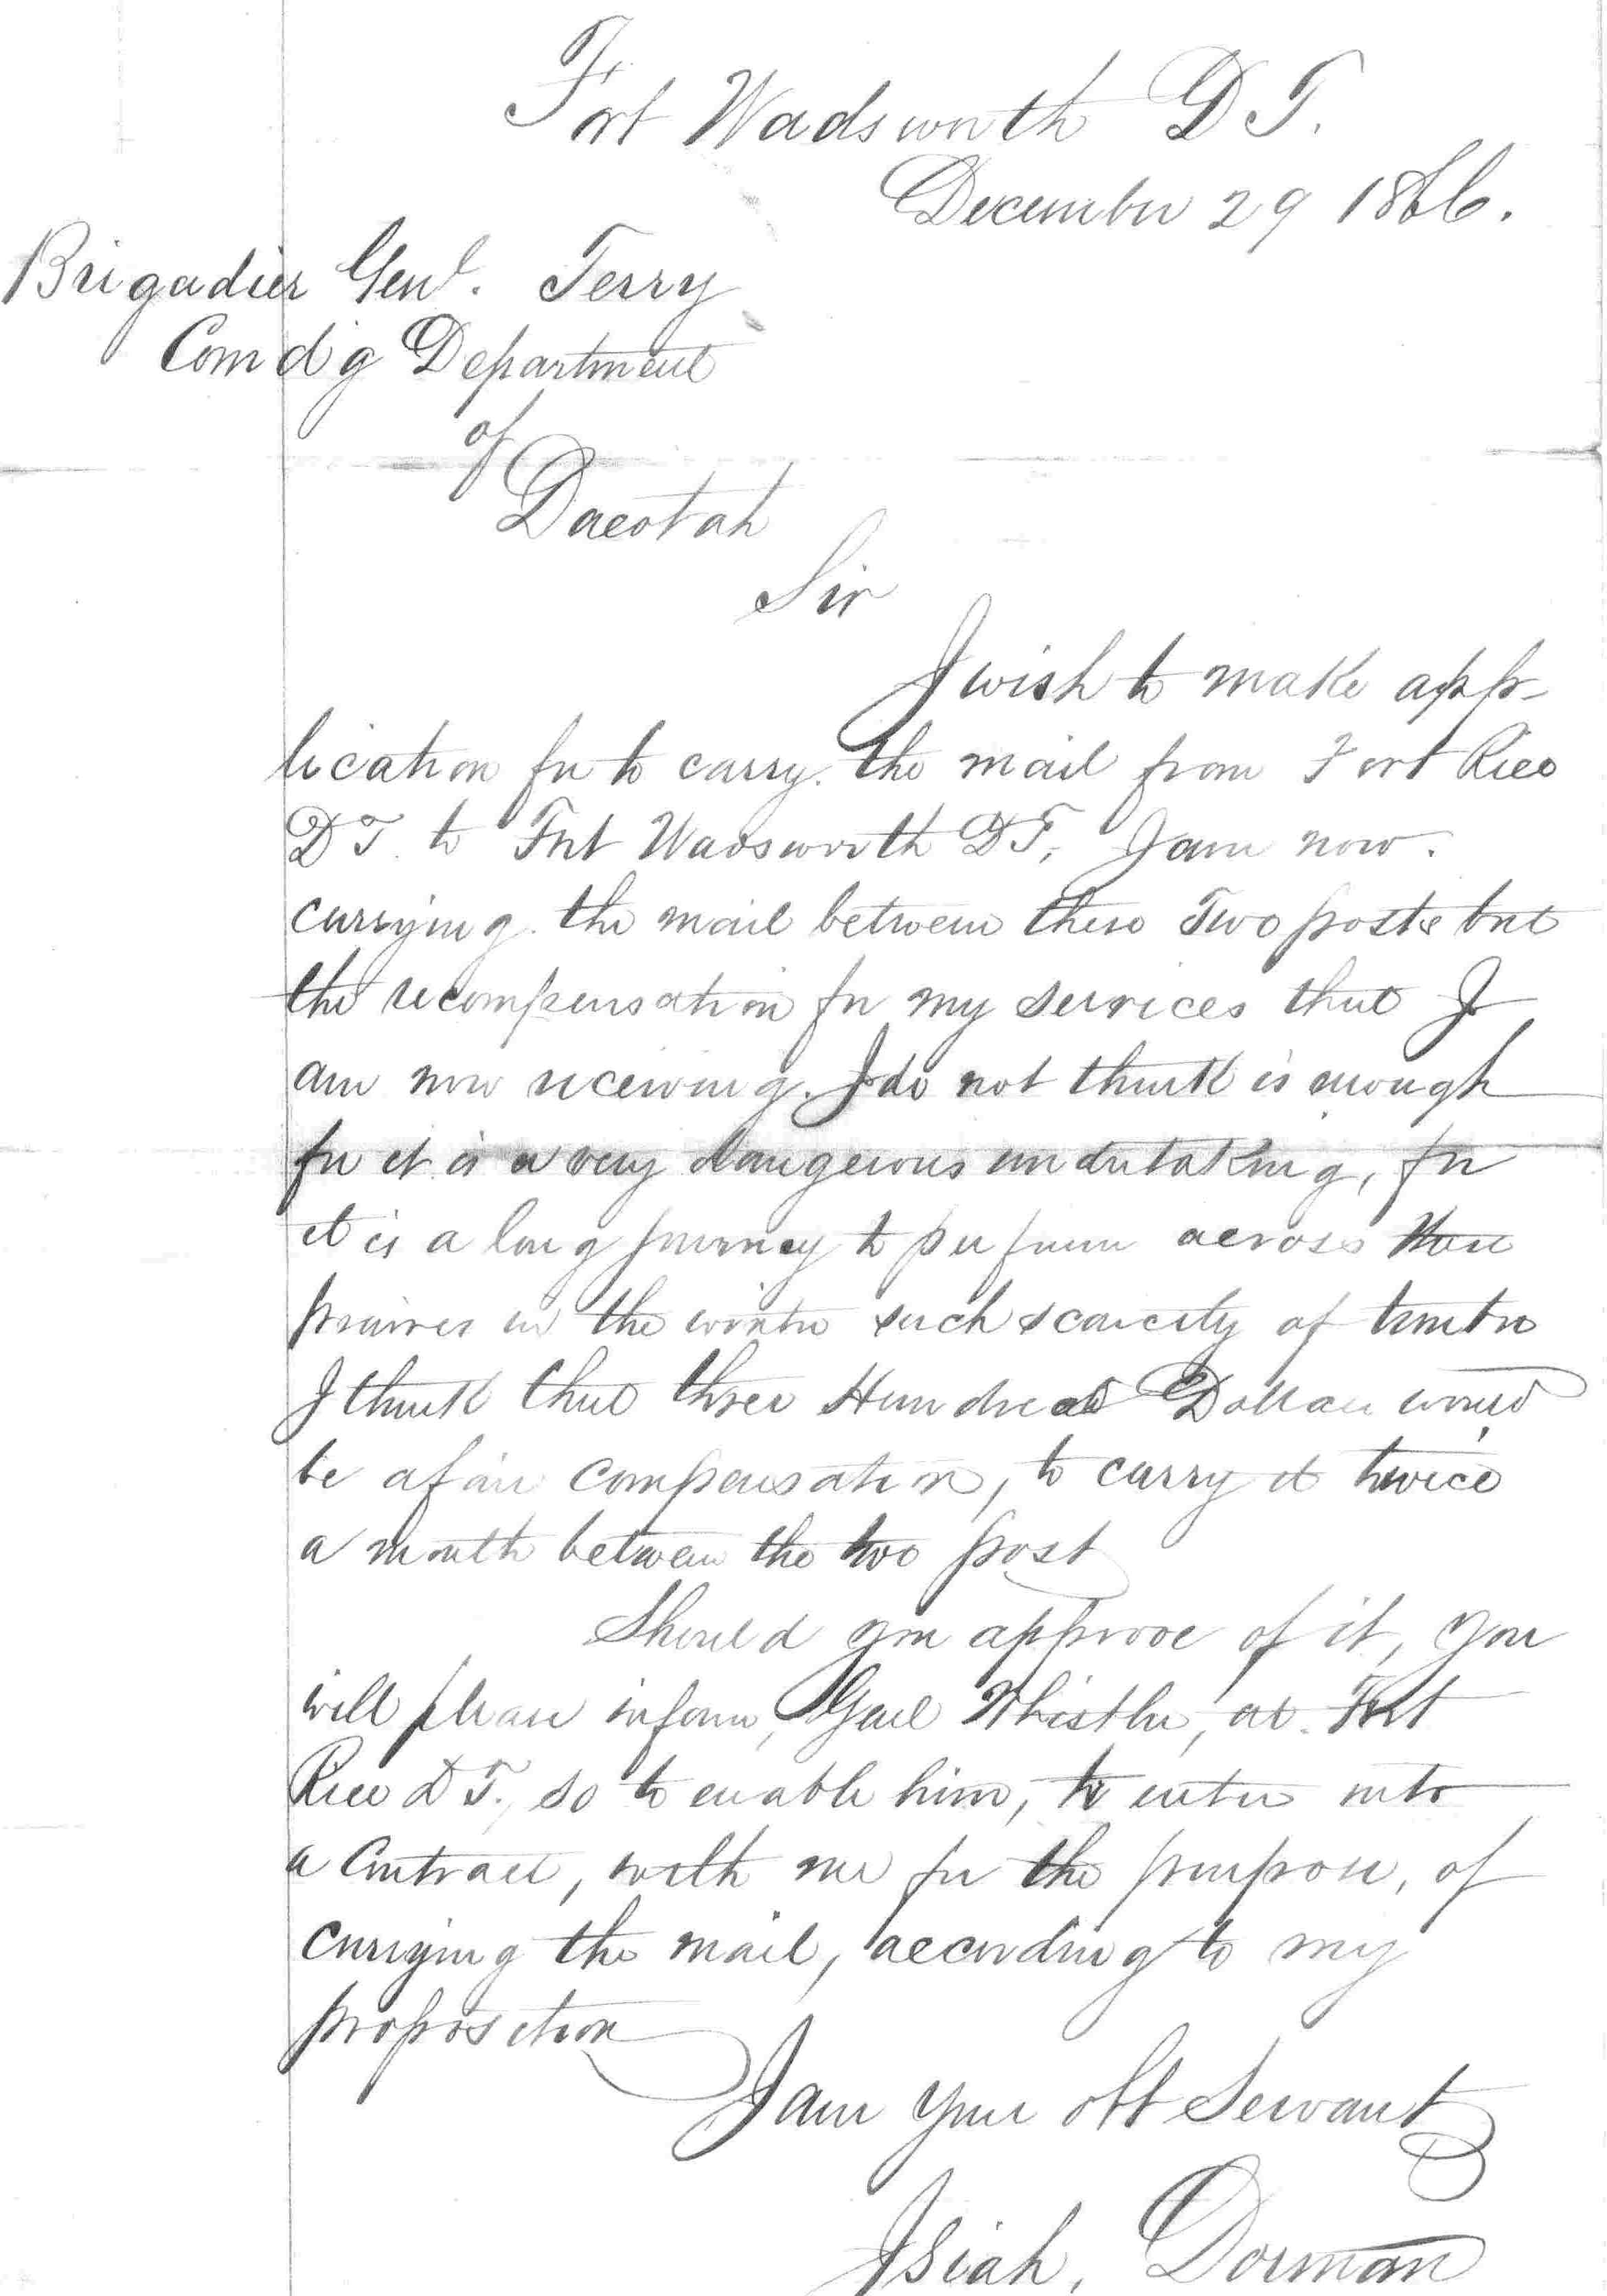 Fort Wadsworth D T.
December 29 1866.
Brigadier Genl. Terry
Comd'g Department
of
Dacotah
Sir
I wish to make app-
lication for to carry. the mail from Fort Rice
D T. to Fort Wadsworth D T, I am now.
carrying. the mail between these Two posts but
the recompensation for my services that I
am now receiving. I do not think is enough
for it is a very dangerous undertaking, for
it is a long journey to perform across these
prairies in the winter such scarcity of timber
I think that three Hundred Dollars would
be a fair compensation, to carry it twice
a month between the two post
Should you approve of it, you
will please inform, Genl Whistler, at. Fort
Rice D T., so to enable him, to enter into
a Contract, with me for the purpose, of
carrying the mail, according to my
proposition
I am your obt Servant
Isiah, Dorman